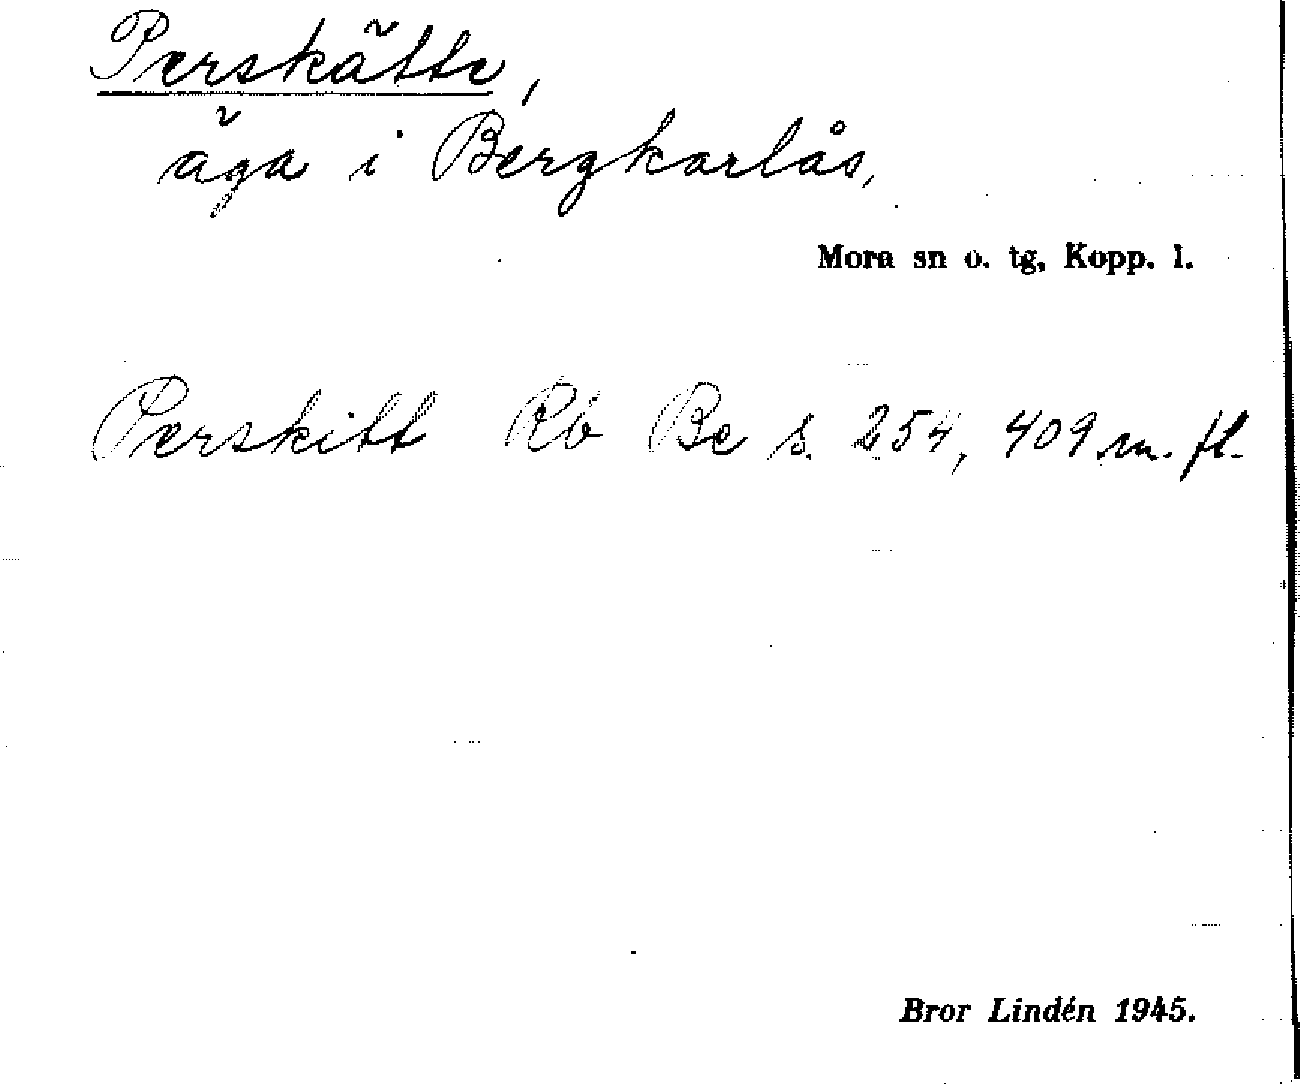 Perskätte,
äga i Bergkarlås,
Mora sn o. tg, Kopp. l.
Perskitt Rb Be s. 254, 409 m. fl.
Bror Lindén 1945.